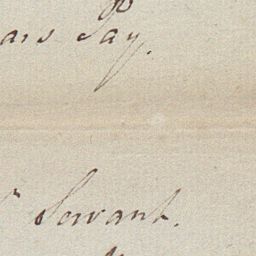 ars Pay.
r Servant.